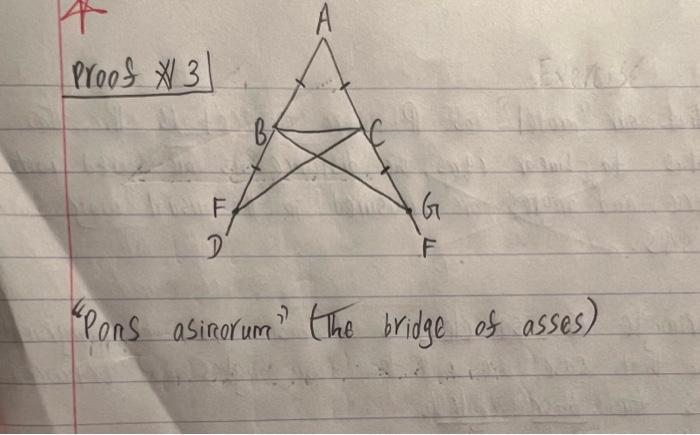 A
Proof # 3
B C
F G
D F
"Pons asinorum" (The bridge of asses)